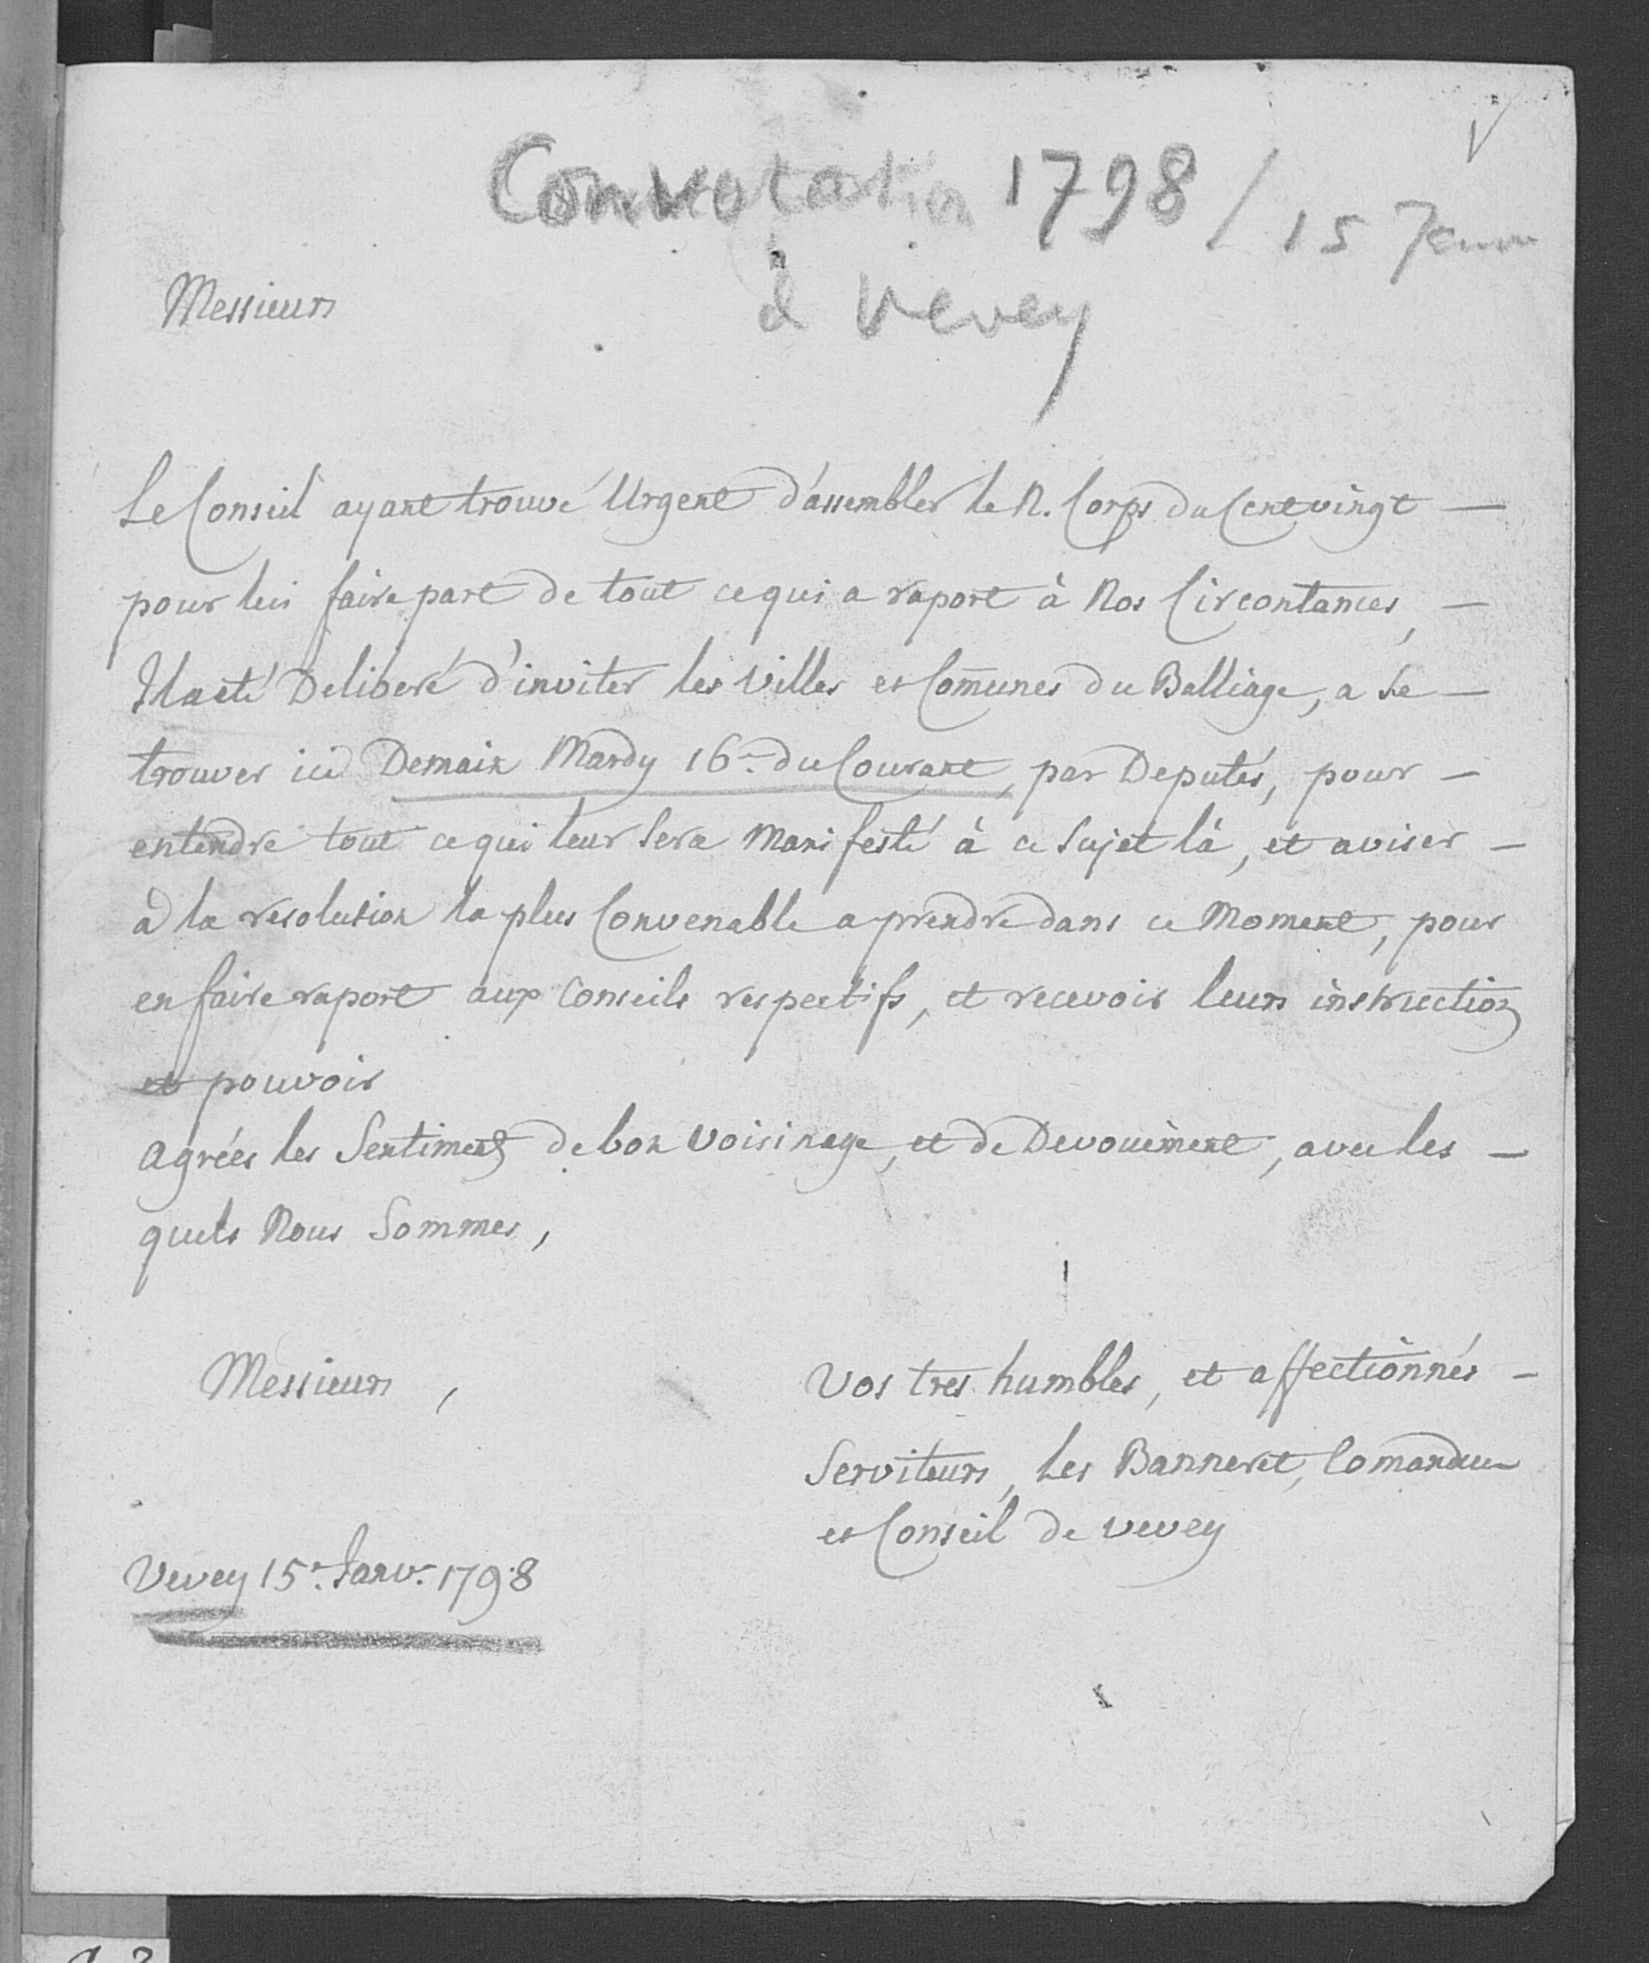 Convocation 1798 / 15 Janv
à Vevey
Messieurs
Le Conseil ayant trouvé Urgent d'assembler le N. Corps du Cent vingt —
pour lui faire part de tout ce qui a raport à Nos Circontances, —
Il a été Deliberé d'inviter les Villes et Com̄unes du Balliage, a se —
trouver ici Demain Mardy 16e. du Courant, par Deputés, pour —
entendre tout ce qui leur sera Manifesté à ce sujet là, et aviser —
à la resolution la plus Convenable a prendre dans ce Moment, pour
en faire raport aux Conseils respectifs, et recevoir leurs instruction
et pouvoir
Agrées les Sentiments de bon Voisinage, et de Devouëment, avec les —
quels Nous Sommes,
Messieurs,
Vos tres humbles, et affectionnés —
Serviteurs, Les Banneret, Comandeur
et Conseil de Vevey
Vevey 15e. Janv. 1798